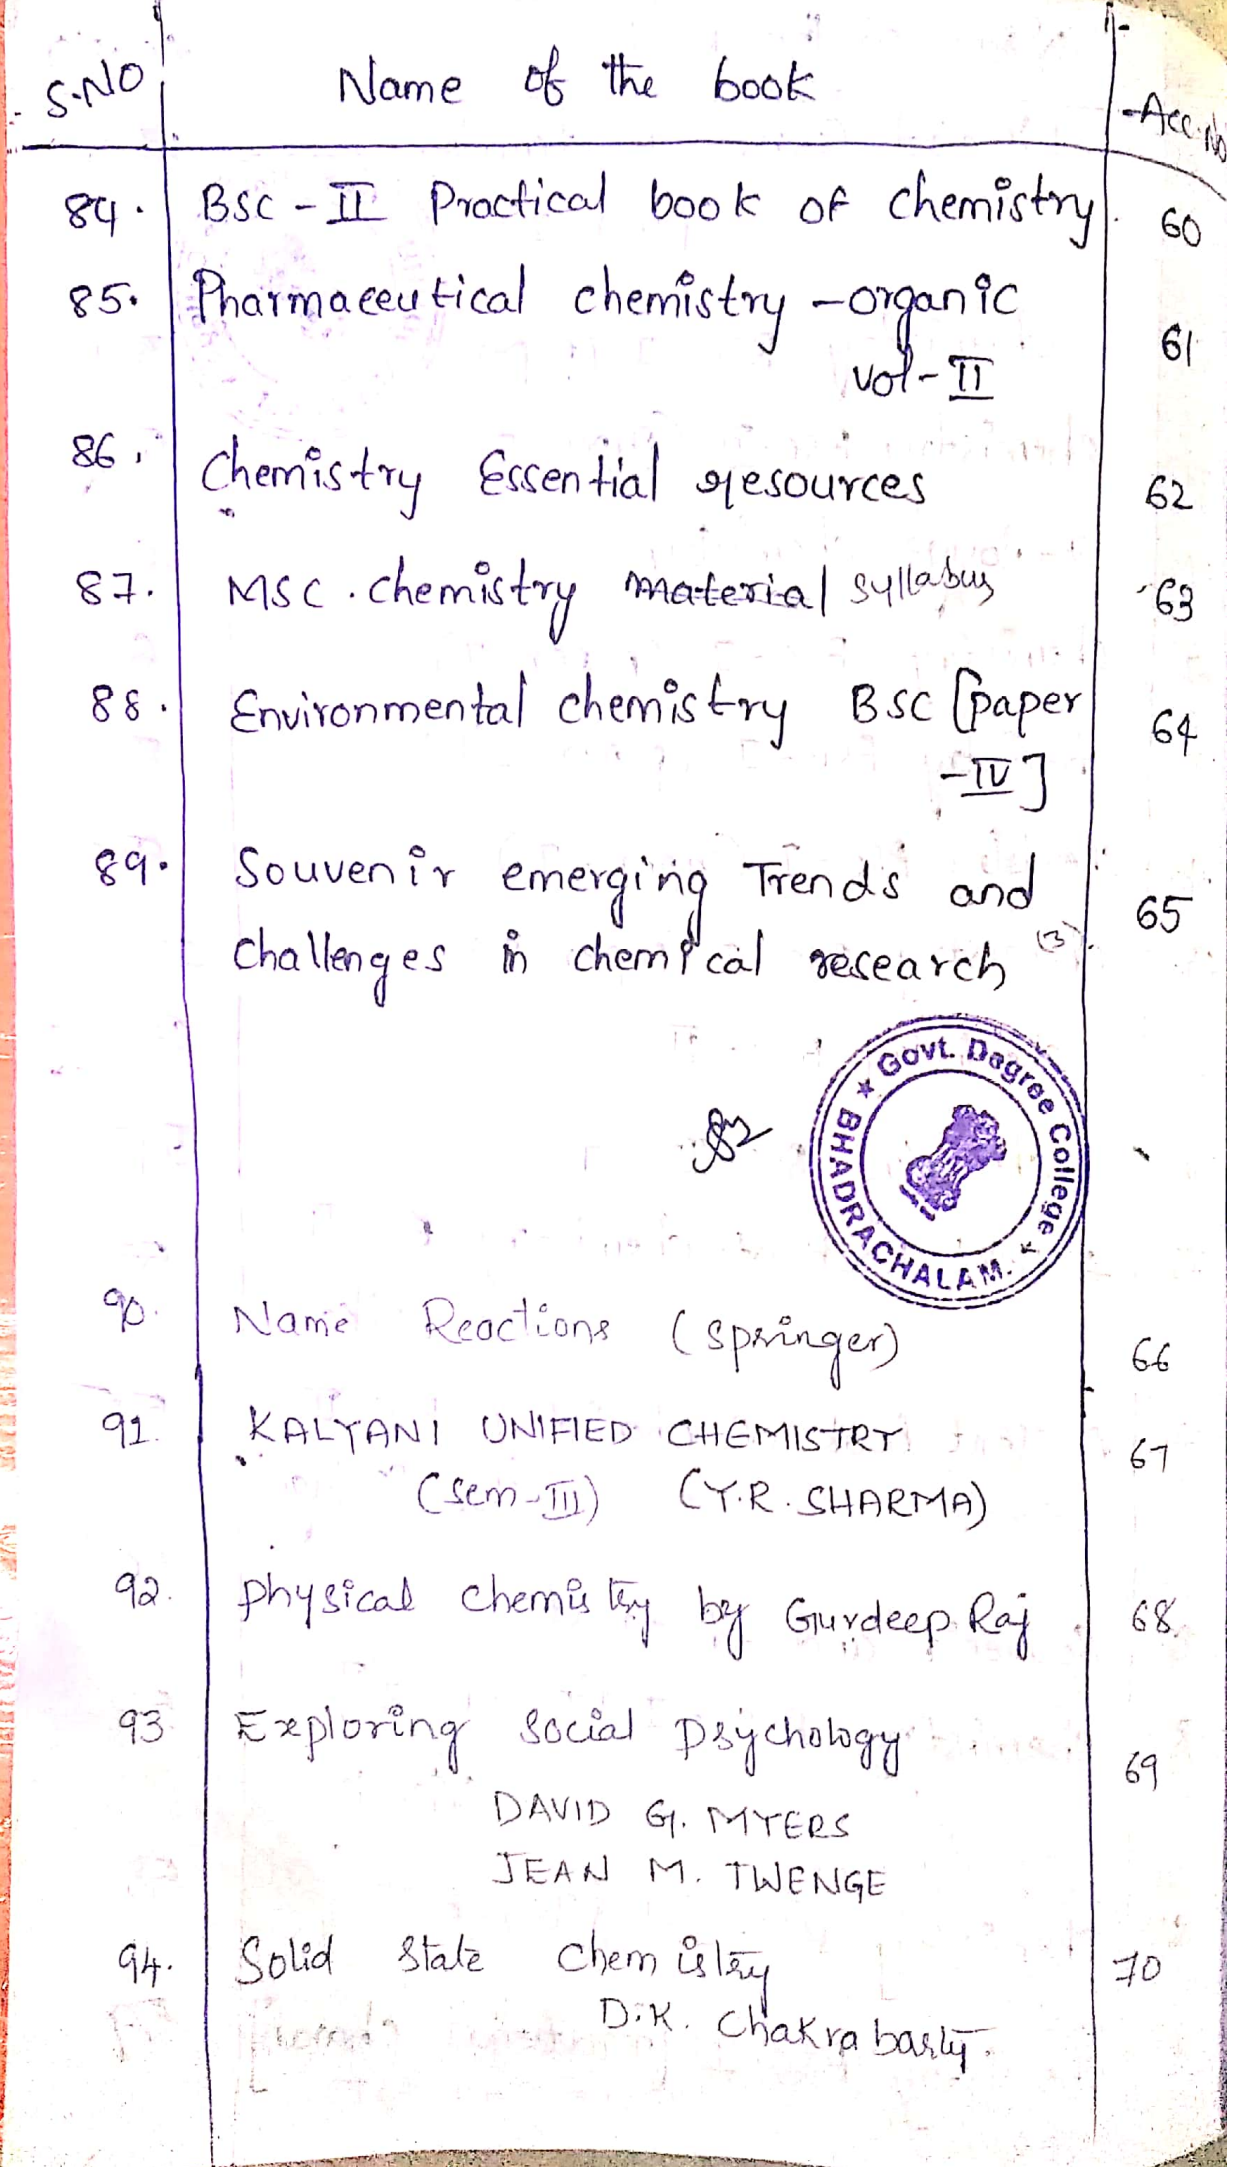 S.NO Name of the book Acc.No
84. BSC - II Practical book of chemistry. 60
85. Pharmaceutical chemistry - organic 61
vol - II
86. Chemistry Essential resources 62
87. MSC. chemistry material syllabus 63
88. Environmental chemistry BSC [paper 64
- IV]
89. Souvenir emerging Trends and 65
challenges in chemical research (3)
Govt. Degree College
BHADRACHALAM.
90. Name Reactions (springer) 66
91. KALYANI UNIFIED CHEMISTRY 67
(Sem-III) (Y.R. SHARMA)
92. physical chemistry by Gurdeep Raj 68
93 Exploring social psychology 69
DAVID G. MYERS
JEAN M. TWENGE
94. Solid State Chemistry 70
D.K. Chakrabarty.